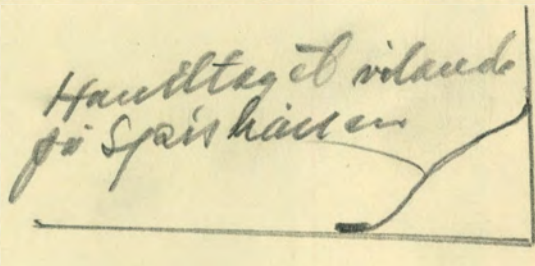 Handtaget vilande
på Spishällen